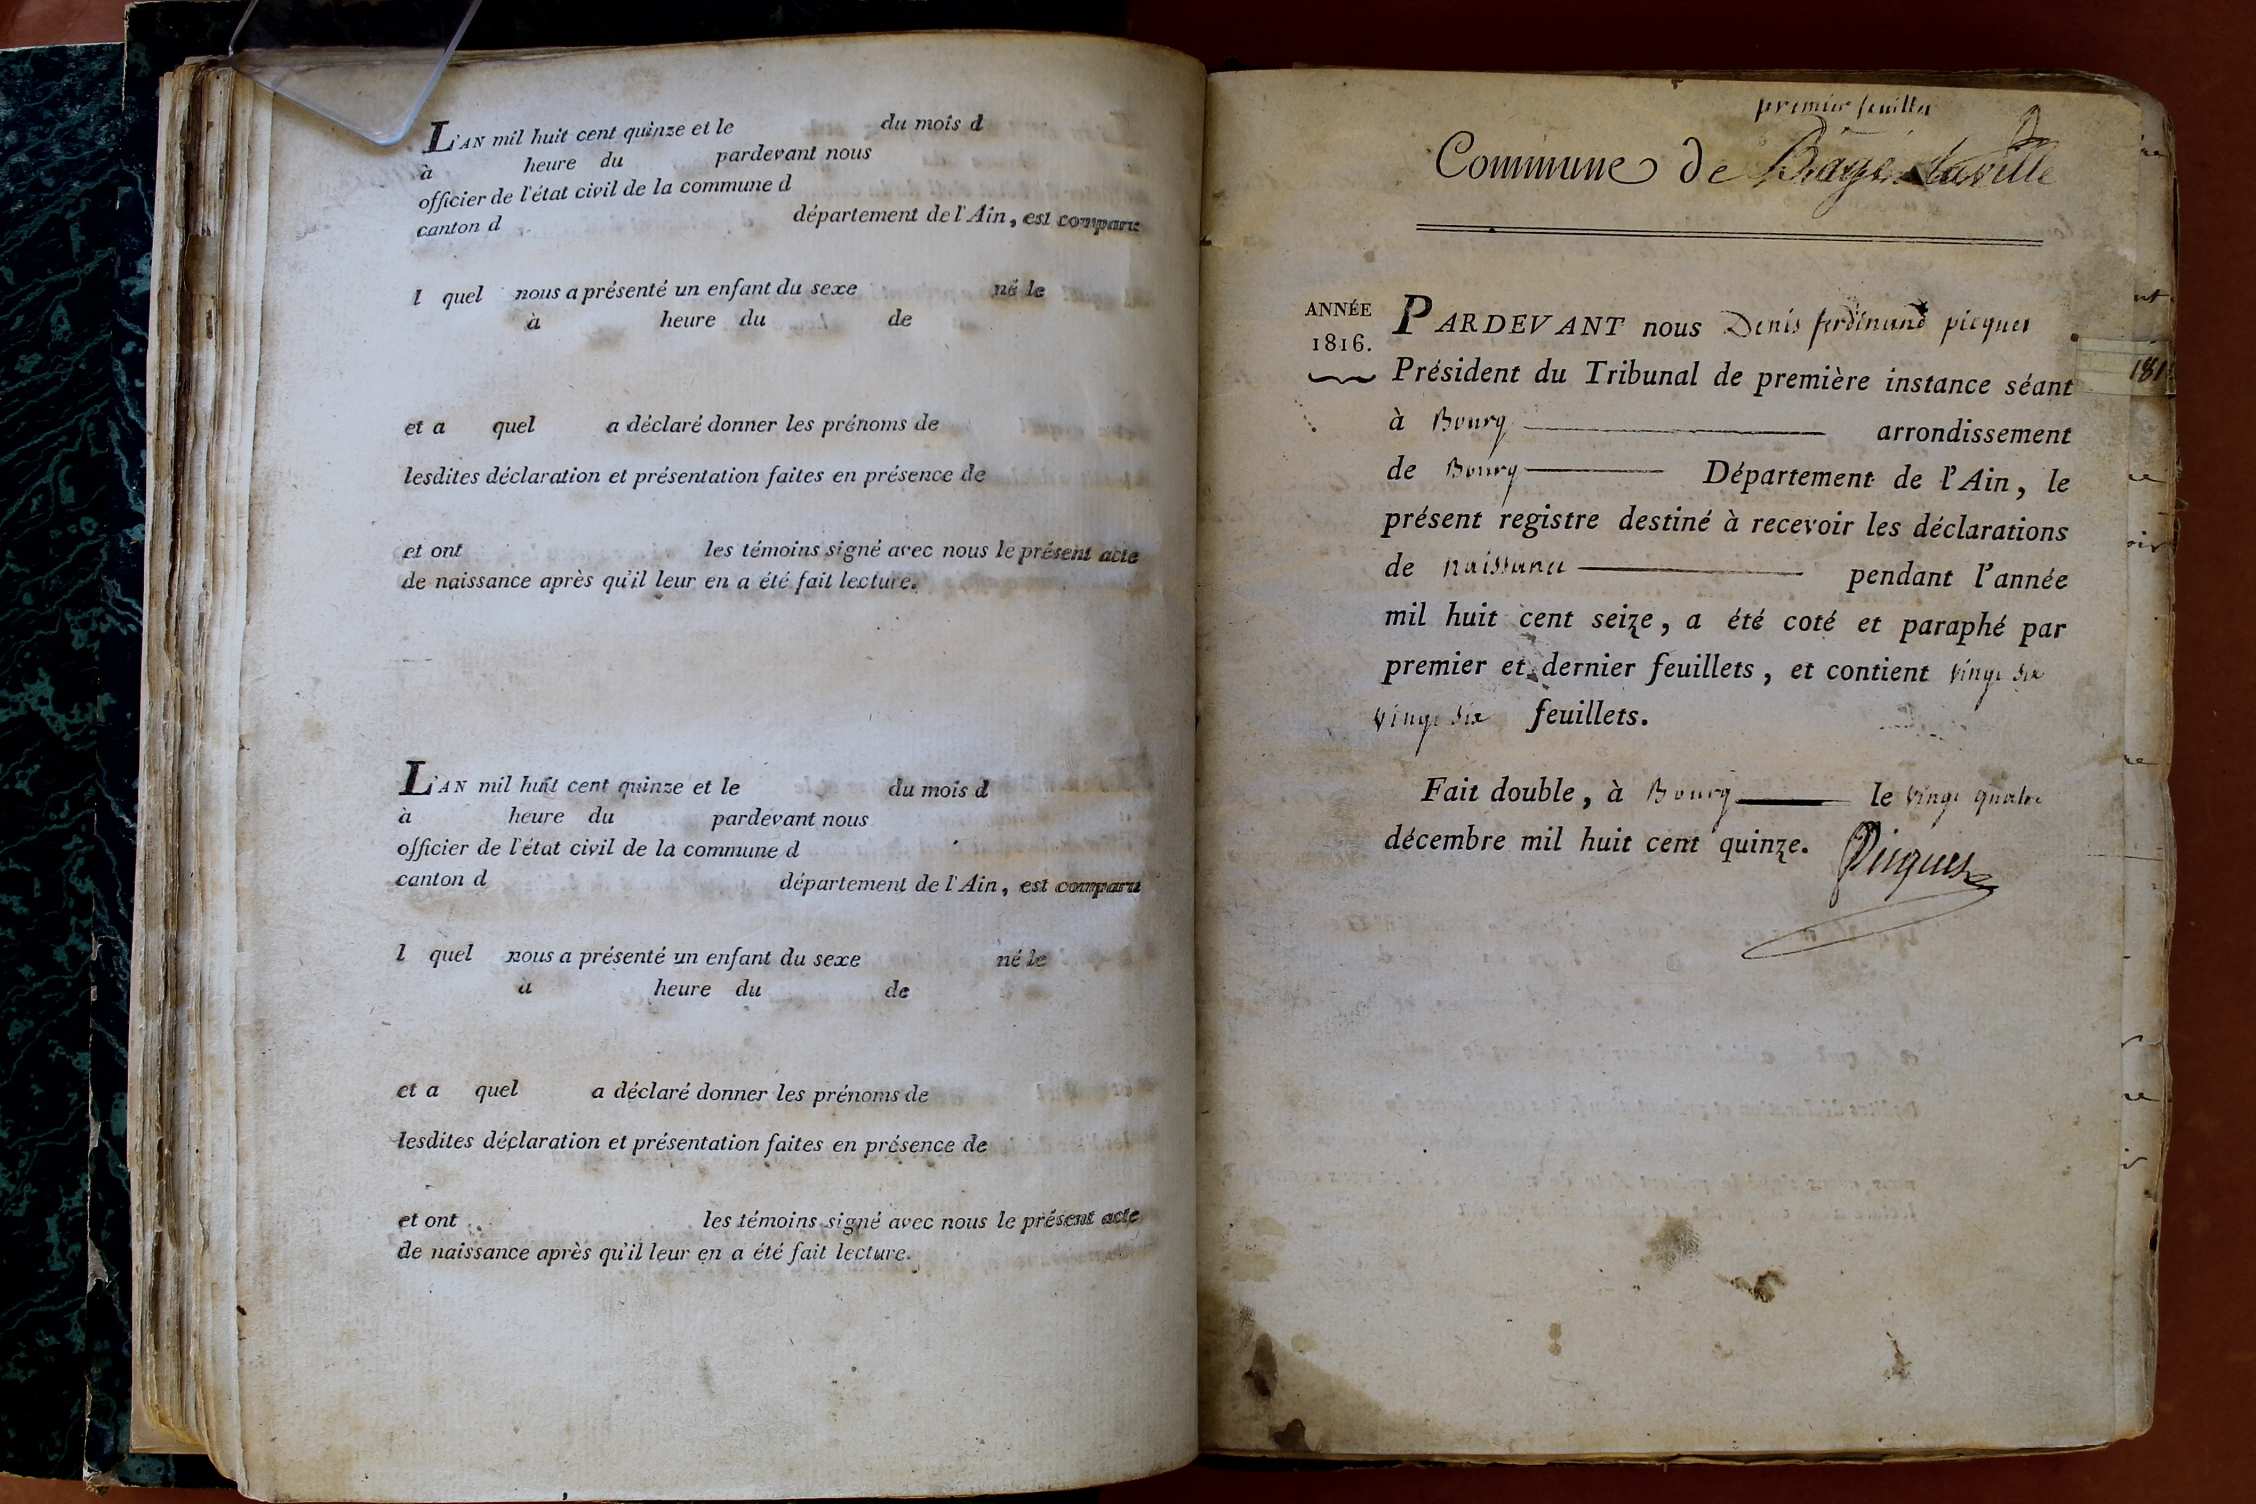 L'AN mil huit cent quinze et le du mois d
à heure du pardevant nous
officier de l'état civil de la commune d
canton d département de l'Ain, est comparu
l quel nous a présenté un enfant du sexe né le
à heure du de
et a quel a déclaré donner les prénoms de
lesdites déclaration et présentation faites en présence de
et ont les témoins signé avec nous le présent acte
de naissance après qu'il leur en a été fait lecture.
L'AN mil huit cent quinze et le du mois d
à heure du pardevant nous
officier de l'état civil de la commune d
canton d département de l'Ain, est comparu
l quel nous a présenté un enfant du sexe né le
à heure du de
et a quel a déclaré donner les prénoms de
lesdites déclaration et présentation faites en présence de
et ont les témoins signé avec nous le présent acte
de naissance après qu'il leur en a été fait lecture.
premier feuillet
Commune de Bagé laville
ANNÉE
1816.
PARDEVANT nous Denis ferdinand picquet
Président du Tribunal de première instance séant
à Bourg arrondissement
de Bourg Département de l'Ain, le
présent registre destiné à recevoir les déclarations
de naissance pendant l'année
mil huit cent seize, a été coté et paraphé par
premier et dernier feuillets, et contient vingt six
vingt six feuillets.
Fait double, à Bourg le vingt quatre
décembre mil huit cent quinze.
Picquet
181